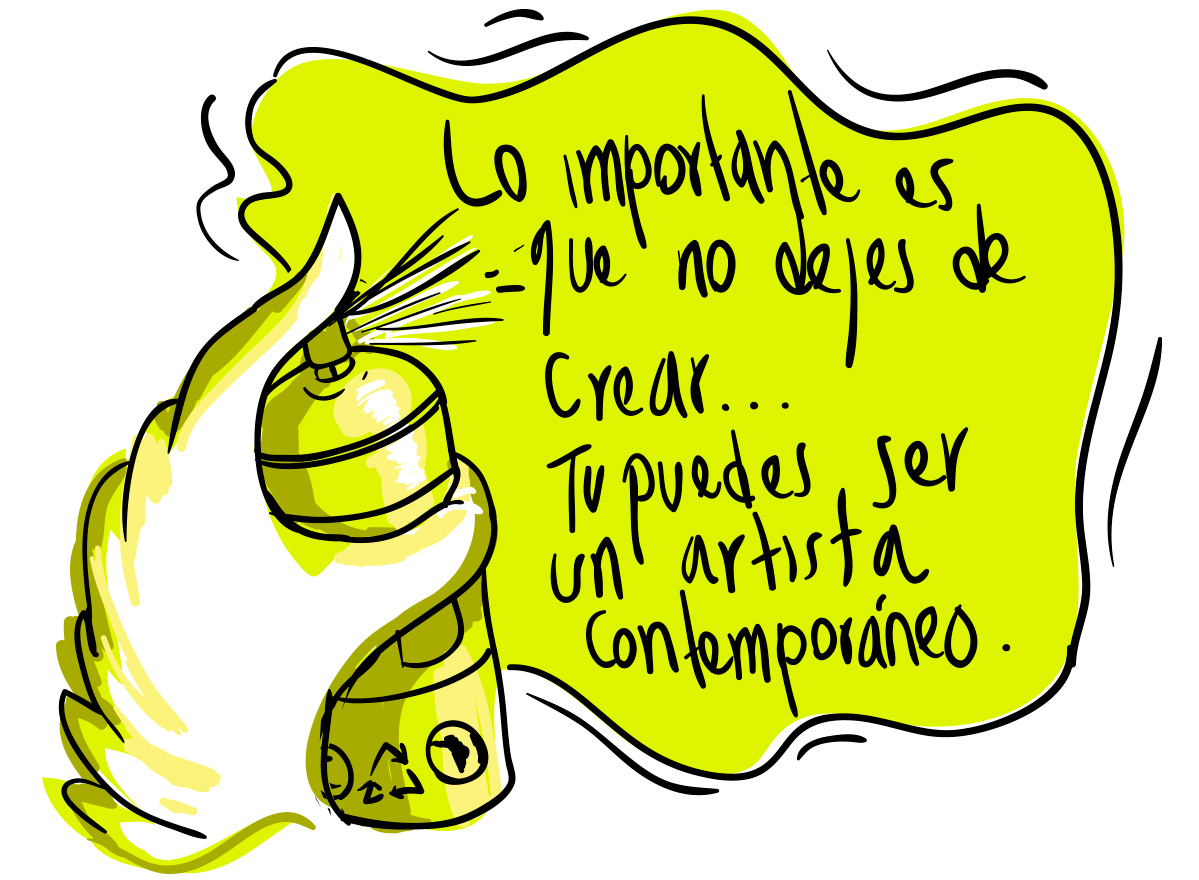 Lo importante es
que no dejes de
Crear...
Tu puedes ser
un artista
Contemporáneo.